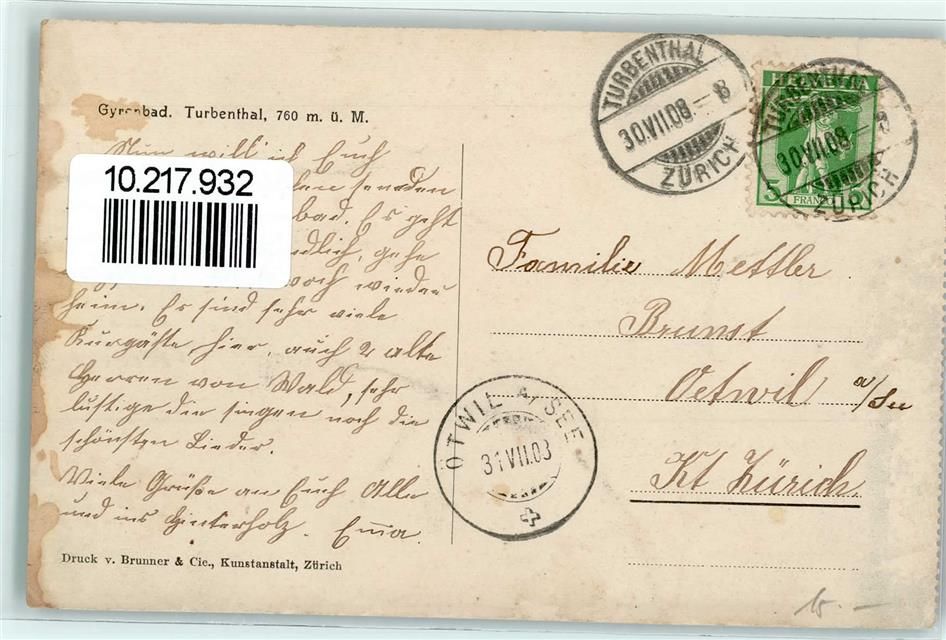 Gyrenbad. Turbenthal, 760 m. ü. M.
Nun will ich Euch
senden
bad. Es geht
gehe
noch wieder
heim. Es sind sehr viele
Kurgäste hier, auch 2 alte
Herren von Wald, sehr
lustige die singen noch die
schönsten Lieder.
Viele Grüße an Euch Alle
und ins Hinterholz. Emma.
Druck v. Brunner & Cie., Kunstanstalt, Zürich
10.217.932
TURBENTHAL
30.VII.08 – 8
ZÜRICH
HELVETIA
5 FRANCO 5
TURBENTHAL
30.VII.08 – 8
ZÜRICH
Familie Mettler
Brunst
Oetwil a/See
Kt Zürich.
ÖTWIL A. SEE
31 VII.08